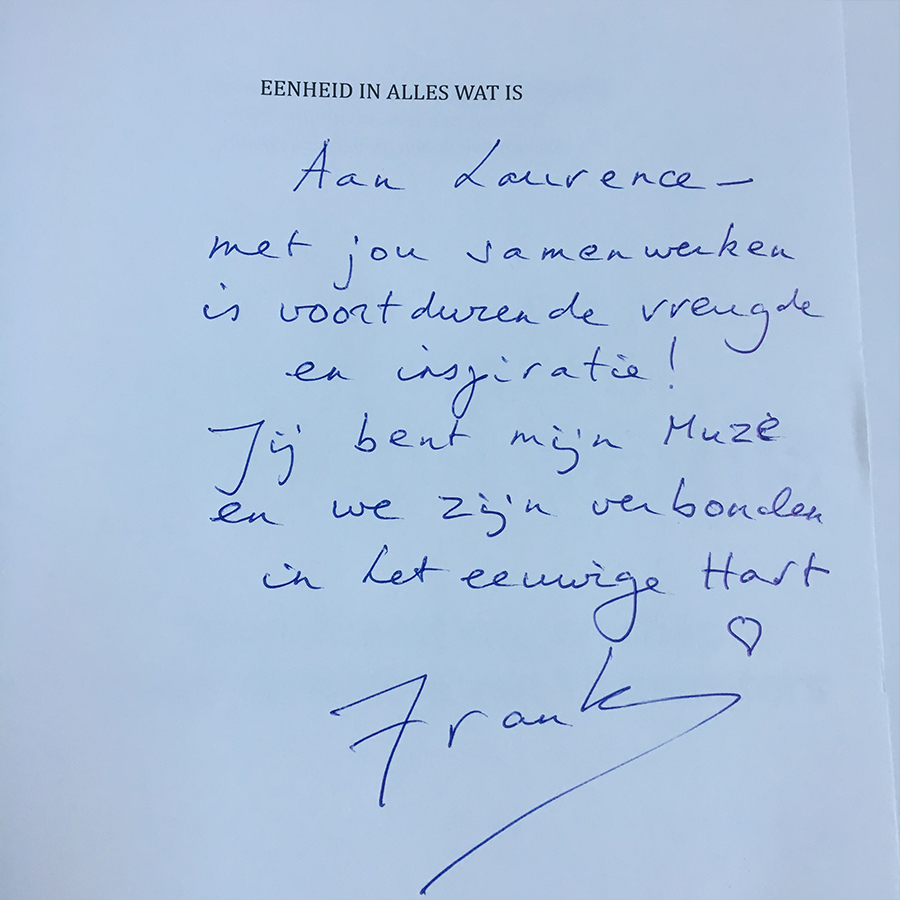 EENHEID IN ALLES WAT IS
Aan Laurence —
met jou samenwerken
is voortdurende vreugde
en inspiratie!
Jij bent mijn Muze
en we zijn verbonden
in het eeuwige Hart
♡
Frank